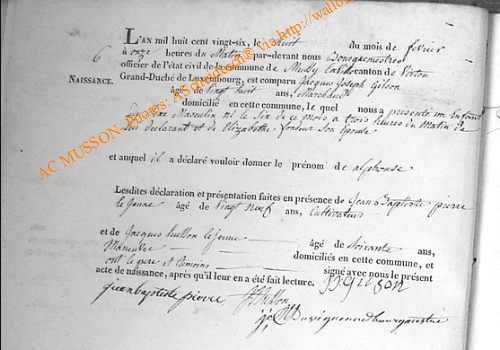 L'AN mil huit cent vingt-six, le huit du mois de février
à onze heures du Matin par-devant nous Bourguemestre
6 officier de l'état civil de la commune de canton de Virton
NAISSANCE. Grand-Duché de Luxembourg, est comparu Jacques Joseph Gilson
âgé de vingt huit ans, Marchand
domicilié en cette commune, le quel nous a présenté un Enfant
Masculin né le Six de ce mois à trois heures du Matin de
lui déclarant et de Elizabethe Son épouse
et auquel il a déclaré vouloir donner le prénom de alphonse
Lesdites déclaration et présentation faites en présence de Jean Baptiste pierre
le jeune âgé de vingt neuf ans, Cultivateur
et de Jacques husson le jeune âgé de Soixante ans,
Maneuvre domiciliés en cette commune, et
ont le pere et témoins signé avec nous le présent
acte de naissance, après qu'il leur en a été fait lecture. JJ Gilson
jean baptiste pierre J husson
bourguemestre
AC MUSSON-Photos: AScheldorn@ via http://wallo